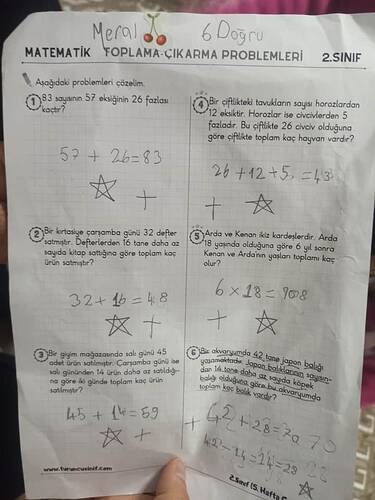 Meral 6 Doğru
MATEMATİK TOPLAMA-ÇIKARMA PROBLEMLERİ 2.SINIF
Aşağıdaki problemleri çözelim.
1 83 sayısının 57 eksiğinin 26 fazlası
kaçtır?
57 + 26 = 83
2 Bir kırtasiye çarşamba günü 32 defter
satmıştır. Defterlerden 16 tane daha az
sayıda kitap sattığına göre toplam kaç
ürün satmıştır?
32 + 16 = 48
3 Bir giyim mağazasında salı günü 45
adet ürün satılmıştır. Çarşamba günü ise
salı gününden 14 ürün daha az satıldığı-
na göre iki günde toplam kaç ürün
satılmıştır?
45 + 14 = 59
4 Bir çiftlikteki tavukların sayısı horozlardan
12 eksiktir. Horozlar ise civcivlerden 5
fazladır. Bu çiftlikte 26 civciv olduğuna
göre çiftlikte toplam kaç hayvan vardır?
26 + 12 + 5 = 43
5 Arda ve Kenan ikiz kardeşlerdir. Arda
18 yaşında olduğuna göre 6 yıl sonra
Kenan ve Arda'nın yaşları toplamı kaç
olur?
6 × 18 =
6 Bir akvaryumda 42 tane japon balığı
yaşamaktadır. Japon balıklarının sayısın-
dan 14 tane daha az sayıda köpek
balığı olduğuna göre bu akvaryumda
toplam kaç balık vardır?
42 + 28 = 70 70
42 - 14 = 28
www.turuncusinif.com
2.Sınıf (5. Hafta